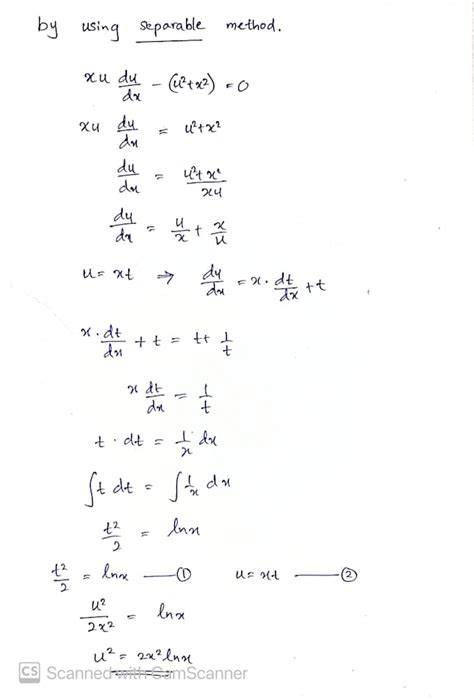 by using separable method.
xu du/dx - (u²+x²) = 0
xu du/dx = u²+x²
du/dx = u²+x²/xu
du/dx = u/x + x/u
u = xt ⇒ du/dx = x · dt/dx + t
x · dt/dx + t = t + 1/t
x dt/dx = 1/t
t · dt = 1/x dx
∫t dt = ∫1/x dx
t²/2 = lnx
t²/2 = lnx —① u = xt —②
u²/2x² = lnx
u² = 2x² lnx
CS Scanned with CamScanner